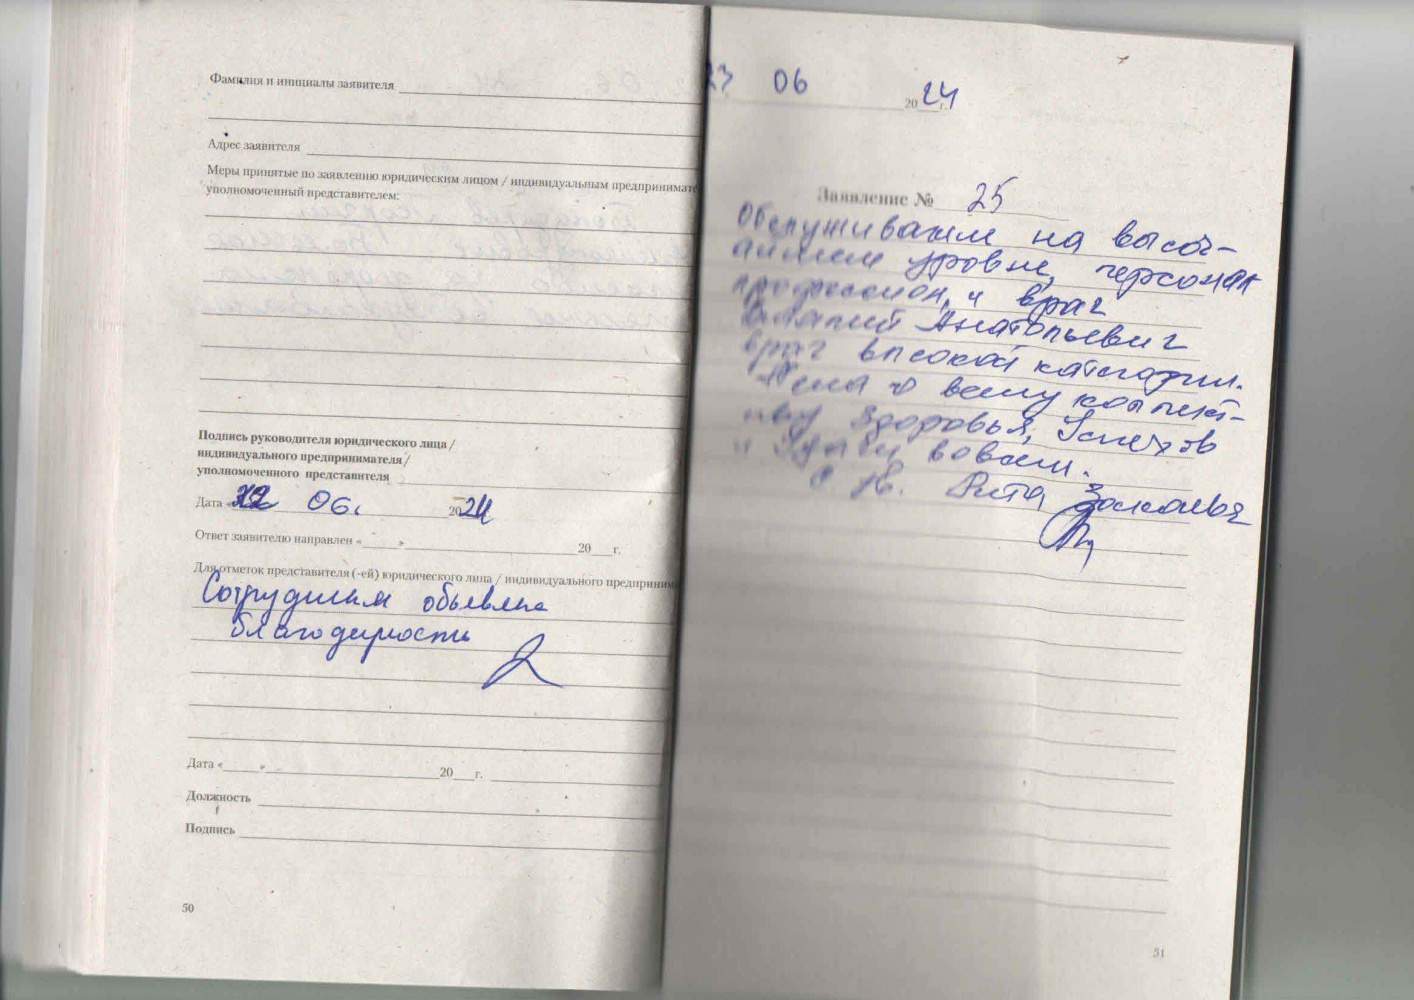 Фамилия и инициалы заявителя
Адрес заявителя
Меры принятые по заявлению юридическим лицом / индивидуальным предпринимате
уполномоченный представителем:
Подпись руководителя юридического лица /
индивидуального предпринимателя /
уполномоченного представителя
Дата « 06. 2024
Ответ заявителю направлен «____» 20___г.
Для отметок представителя (-ей) юридического лица / индивидуального предприним
Сотрудникам объявлена
благодарность
Дата «____» 20___г.
Должность
Подпись
50
23 06 2024 г.
Заявление № 25
Обслуживании на высоч-
айшем уровне, персонал
професссион, и врач
Анатольевич
врач высокой категории.
всему коллект-
иву здоровья, Успехов
и Удачи во всем.
С Ув. Рита
51